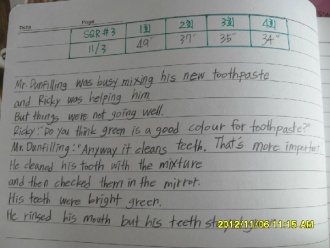 Date Page
SQR #3 1회 2회 3회 4회
11/3 49" 37" 35" 34"
Mr. Danfilling was busy mixing his new toothpaste
and Ricky was helping him
But things were not going well.
Ricky: "Do you think green is a good colour for toothpaste?"
Mr. Danfilling: "Anyway it cleans teeth. That's more important
He cleaned his tooth with the mixture
and then checked them in the mirror.
His tooth were bright green.
He rinsed his mouth but his teeth
2012/11/06 11:15 AM